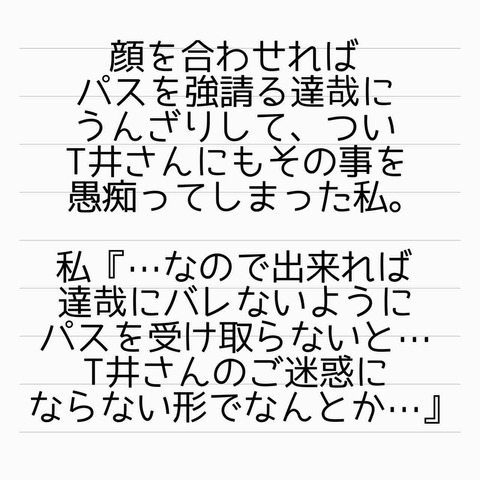 顔を合わせれば
パスを強請る達哉に
うんざりして、つい
T井さんにもその事を
愚痴ってしまった私。
私『…なので出来れば
達哉にバレないように
パスを受け取らないと…
T井さんのご迷惑に
ならない形でなんとか…』